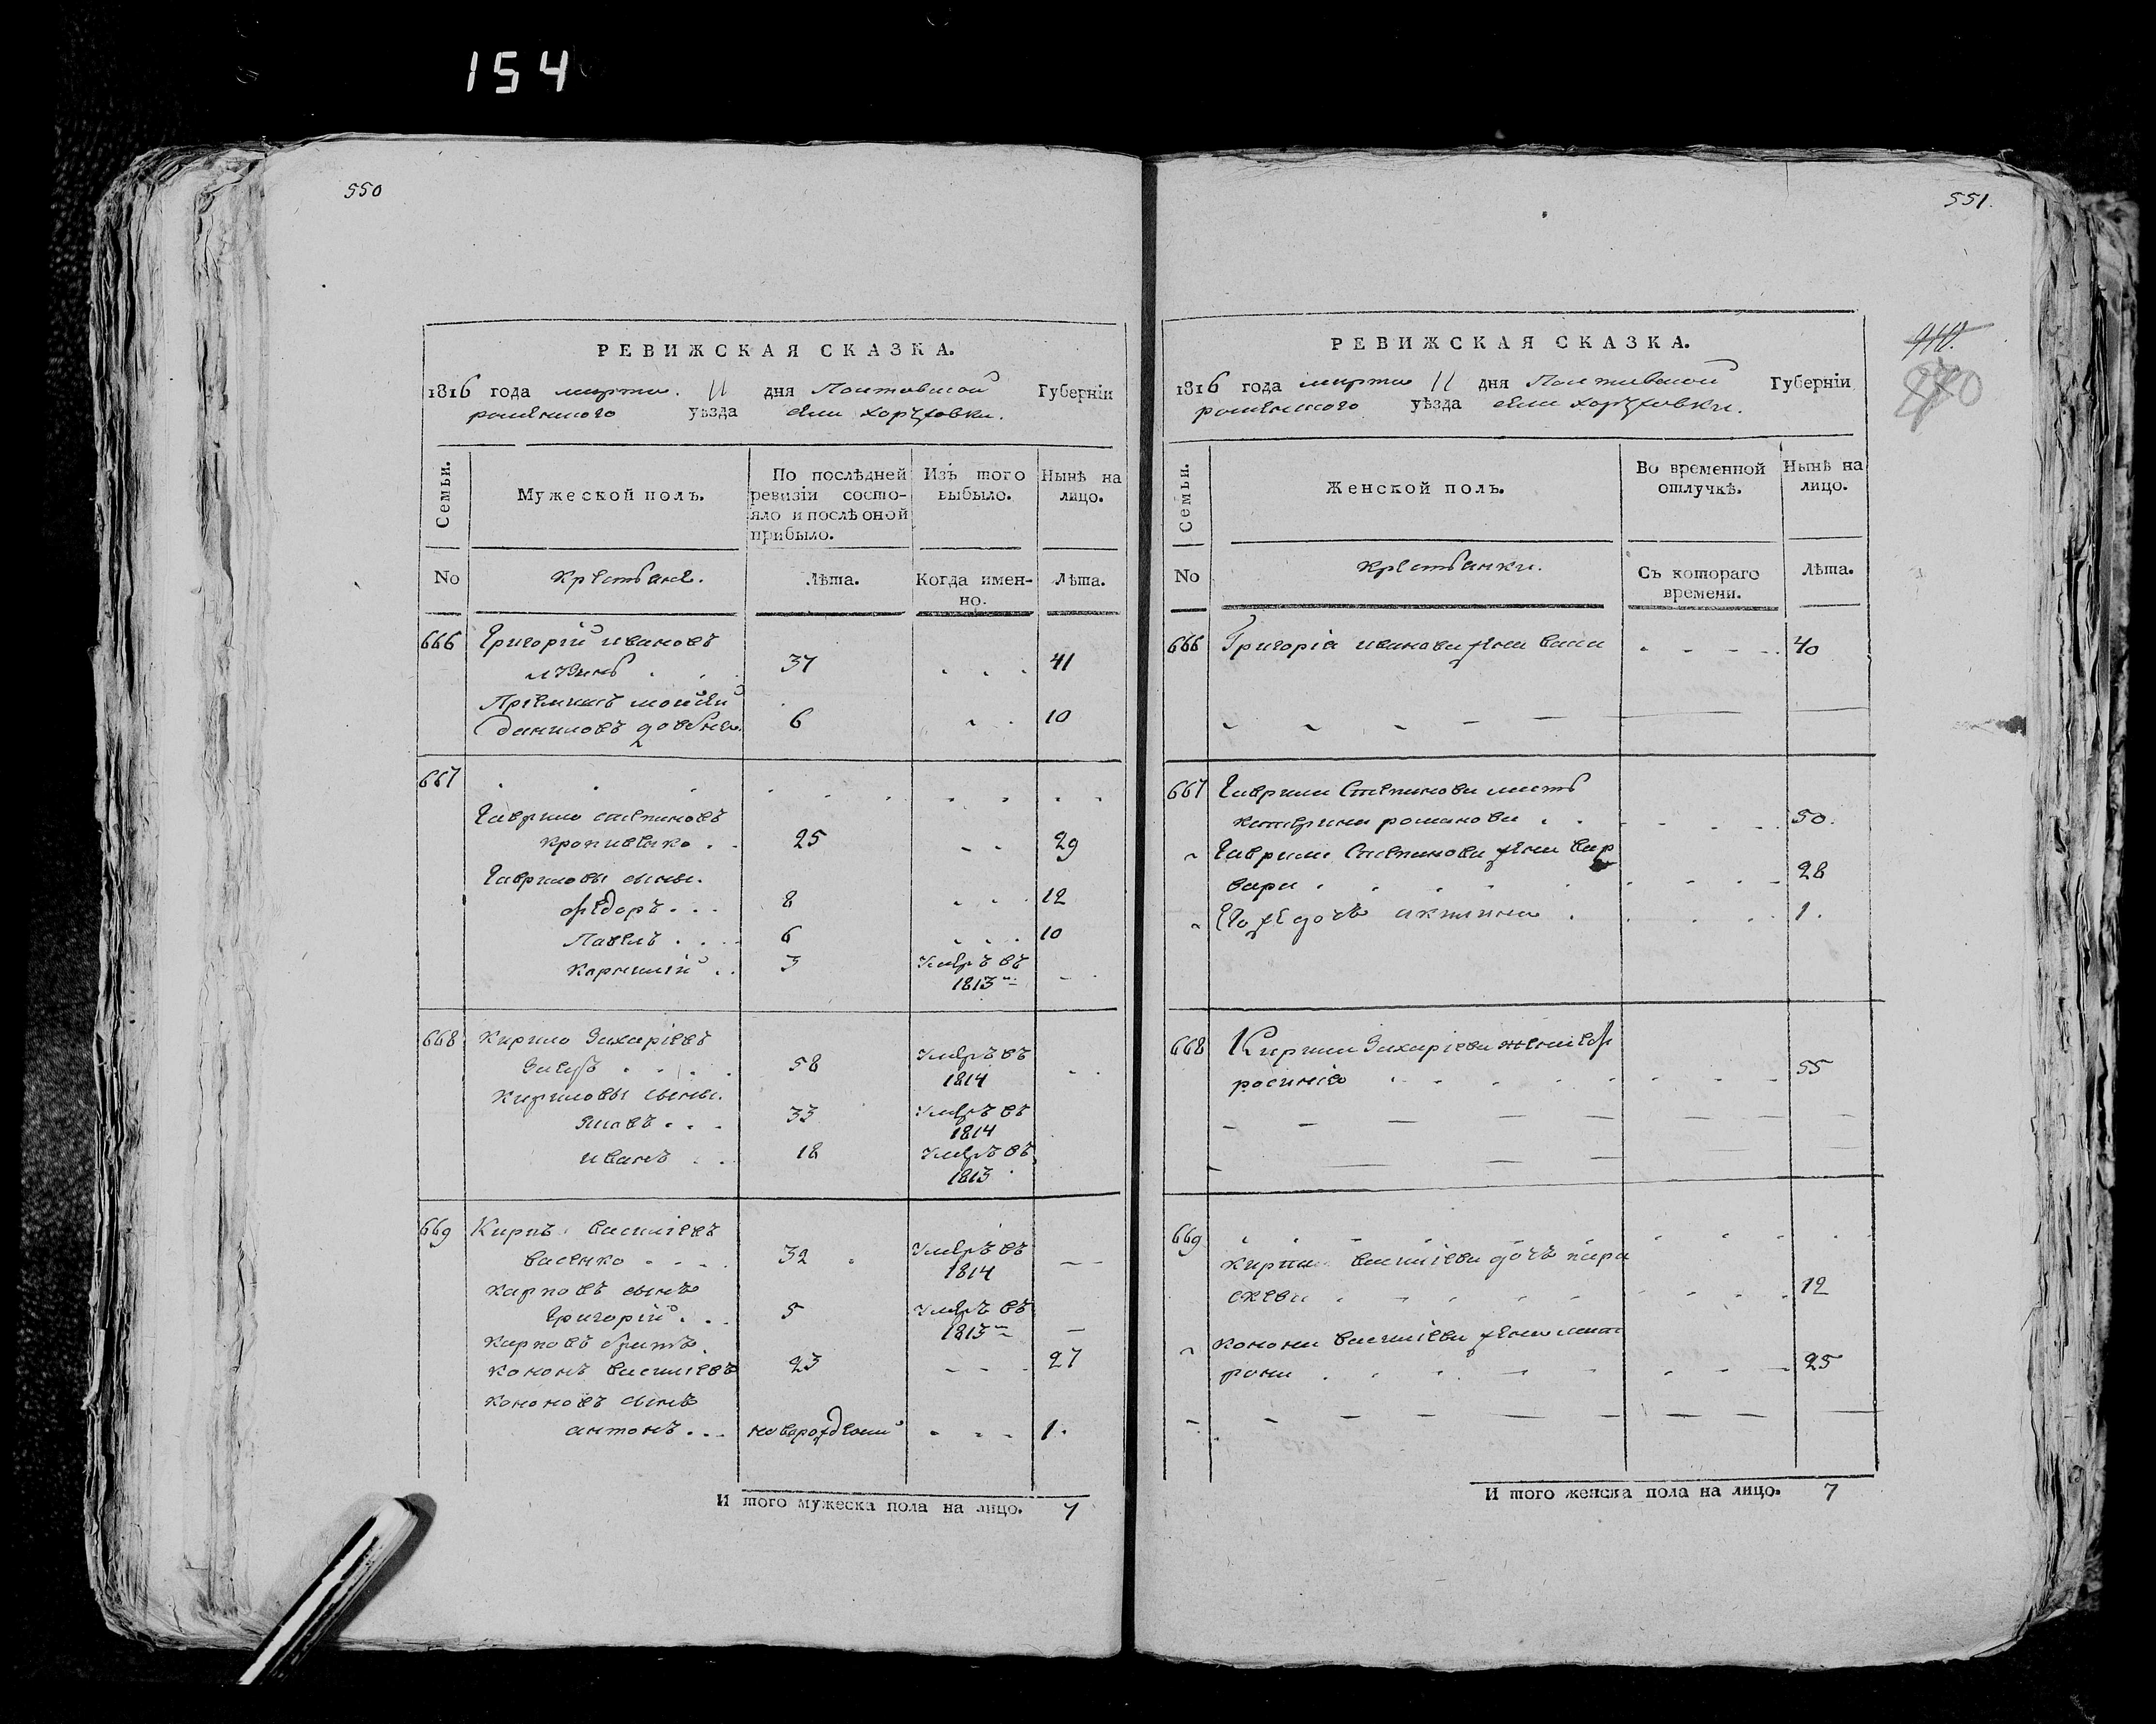 154
550
РЕВИЖСКАЯ СКАЗКА.
1816 года марта. 11 дня Полтавской Губерніи
роменского уѣзда села хоружовки.
Семьи.
Мужеской полъ.
По послѣдней ревизіи состояло и послѣ оной прибыло.
Изъ того выбыло.
Нынѣ на лицо.
No
крестьяне.
Лѣта.
Когда именно.
Лѣта.
666 Григорій ивановъ
37 . . . 41
Пріемишъ мойсей
даниловъ довбня. 6 . . 10
667
Гаврило степановъ
кропивенко . . 25 - - 29
Гавриловы сыны.
федоръ . . . 8 . . . 12
Павелъ . . . . 6 . . . 10
корнилій . . 3 Умеръ въ
1813 м -
668 Кирило Захаріевъ
58 Умеръ въ
1814
Кириловы сыны.
Яковъ . . . 33 Умеръ въ
1814
иванъ . . 18 Умеръ въ
1813
669 Карпъ василіевъ
васенко . . . . 32 Умеръ въ
1814
карповъ сынъ
Григорій . . . 5 Умеръ въ
1813 м -
карповъ братъ
кононъ василіевъ 23 - - - 27
кононовъ сынъ
антонъ . . . новорожденій . . . 1.
И того мужеска пола на лицо. 7
551.
РЕВИЖСКАЯ СКАЗКА.
1816 года марта 11 дня Полтавской Губерніи
роменского уѣзда села хоружовки.
Семьи.
Женской полъ.
Во временной отлучкѣ.
Нынѣ на лицо.
No
крестьянки.
Съ котораго времени.
Лѣта.
666 Григорія иванова жена васа . . . . 40
667 Гаврила Степанова мать
катерина романова . . . . . . 50.
Гаврила Степанова жена вар
вара . . . . . . . . . 28
Его же дочь акилина . . . . . 1.
668 Кирила Захаріева жена еф
росинія . . . . . . . . . 55
669
карпа василіева дочь пара
скева . . . . . . . . . . 12
конона василіева жена мат
рона . . . . . . . . . 25
И того женска пола на лицо. 7